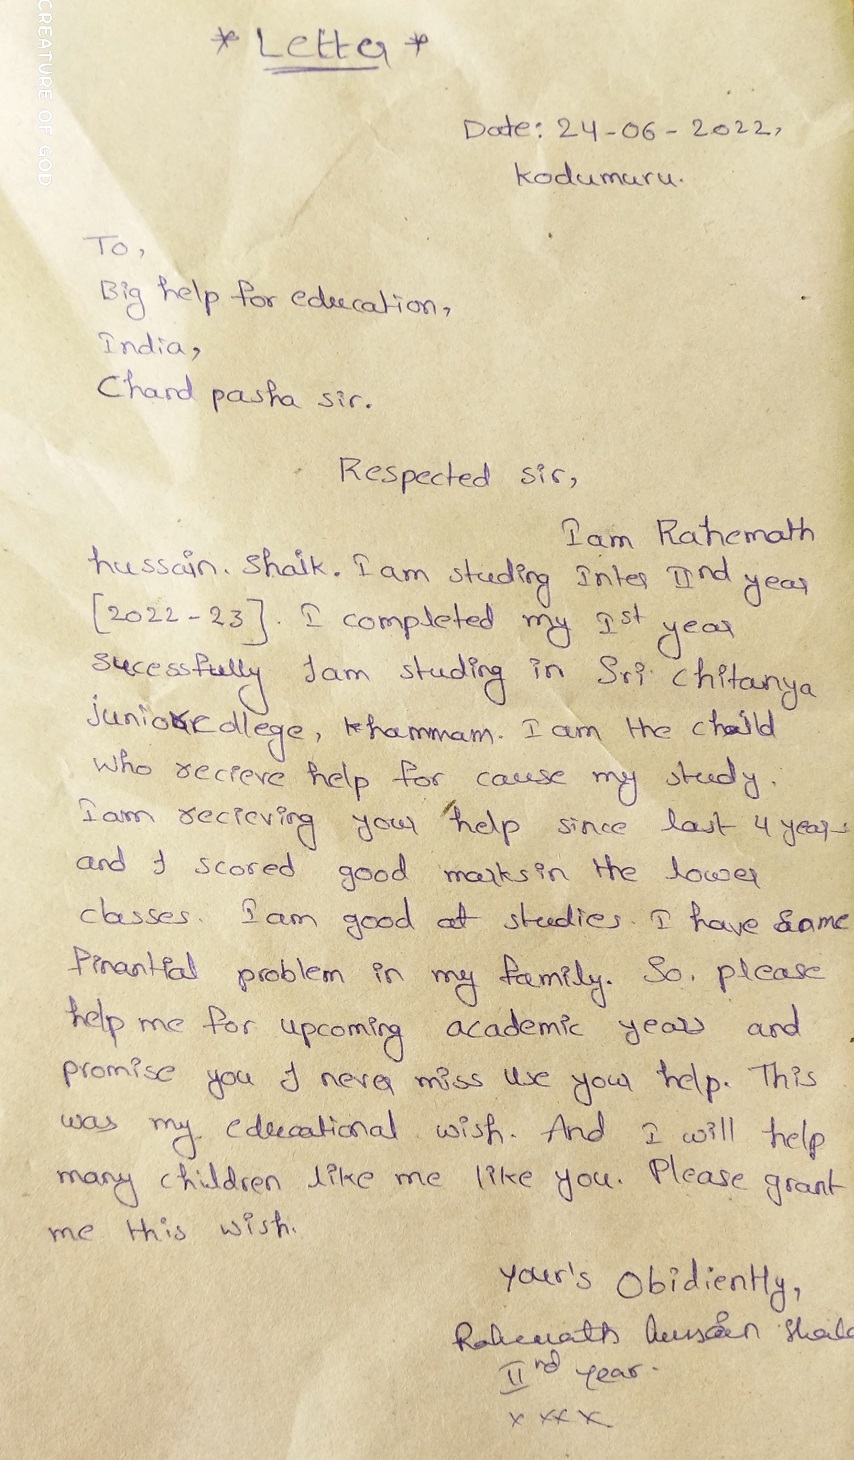 CREATURE OF GOD
* Letter *
Date: 24-06-2022,
Kodumuru.
To,
Big help for education,
India,
Chand pasha sir.
Respected sir,
I am Rahemath
hussain. Shaik. I am studing Inter IInd year
[2022-23]. I completed my Ist year
sucessfully I am studing in Sri chitanya
junior college, Khammam. I am the chaild
who recieve help for cause my study.
I am recieving your help since last 4 years
and I scored good marks in the lower
classes. I am good at studies. I have same
finantial problem in my family. So, please
help me for upcoming academic years and
promise you I never miss use your help. This
was my educational wish. And I will help
many children like me like you. Please grant
me this wish.
your's Obidiently,
Rahemath hussain Shaik
IInd year.
x xx x